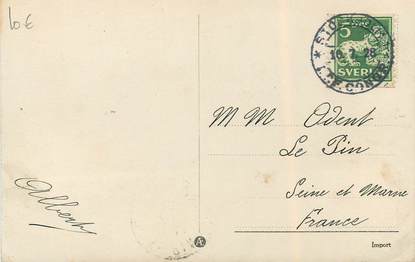 10 €
5
SVERIGE
STOCKHOLM
10 7 28
MM Odent
Le Pin
Seine et Marne
France
Albert
A
Import